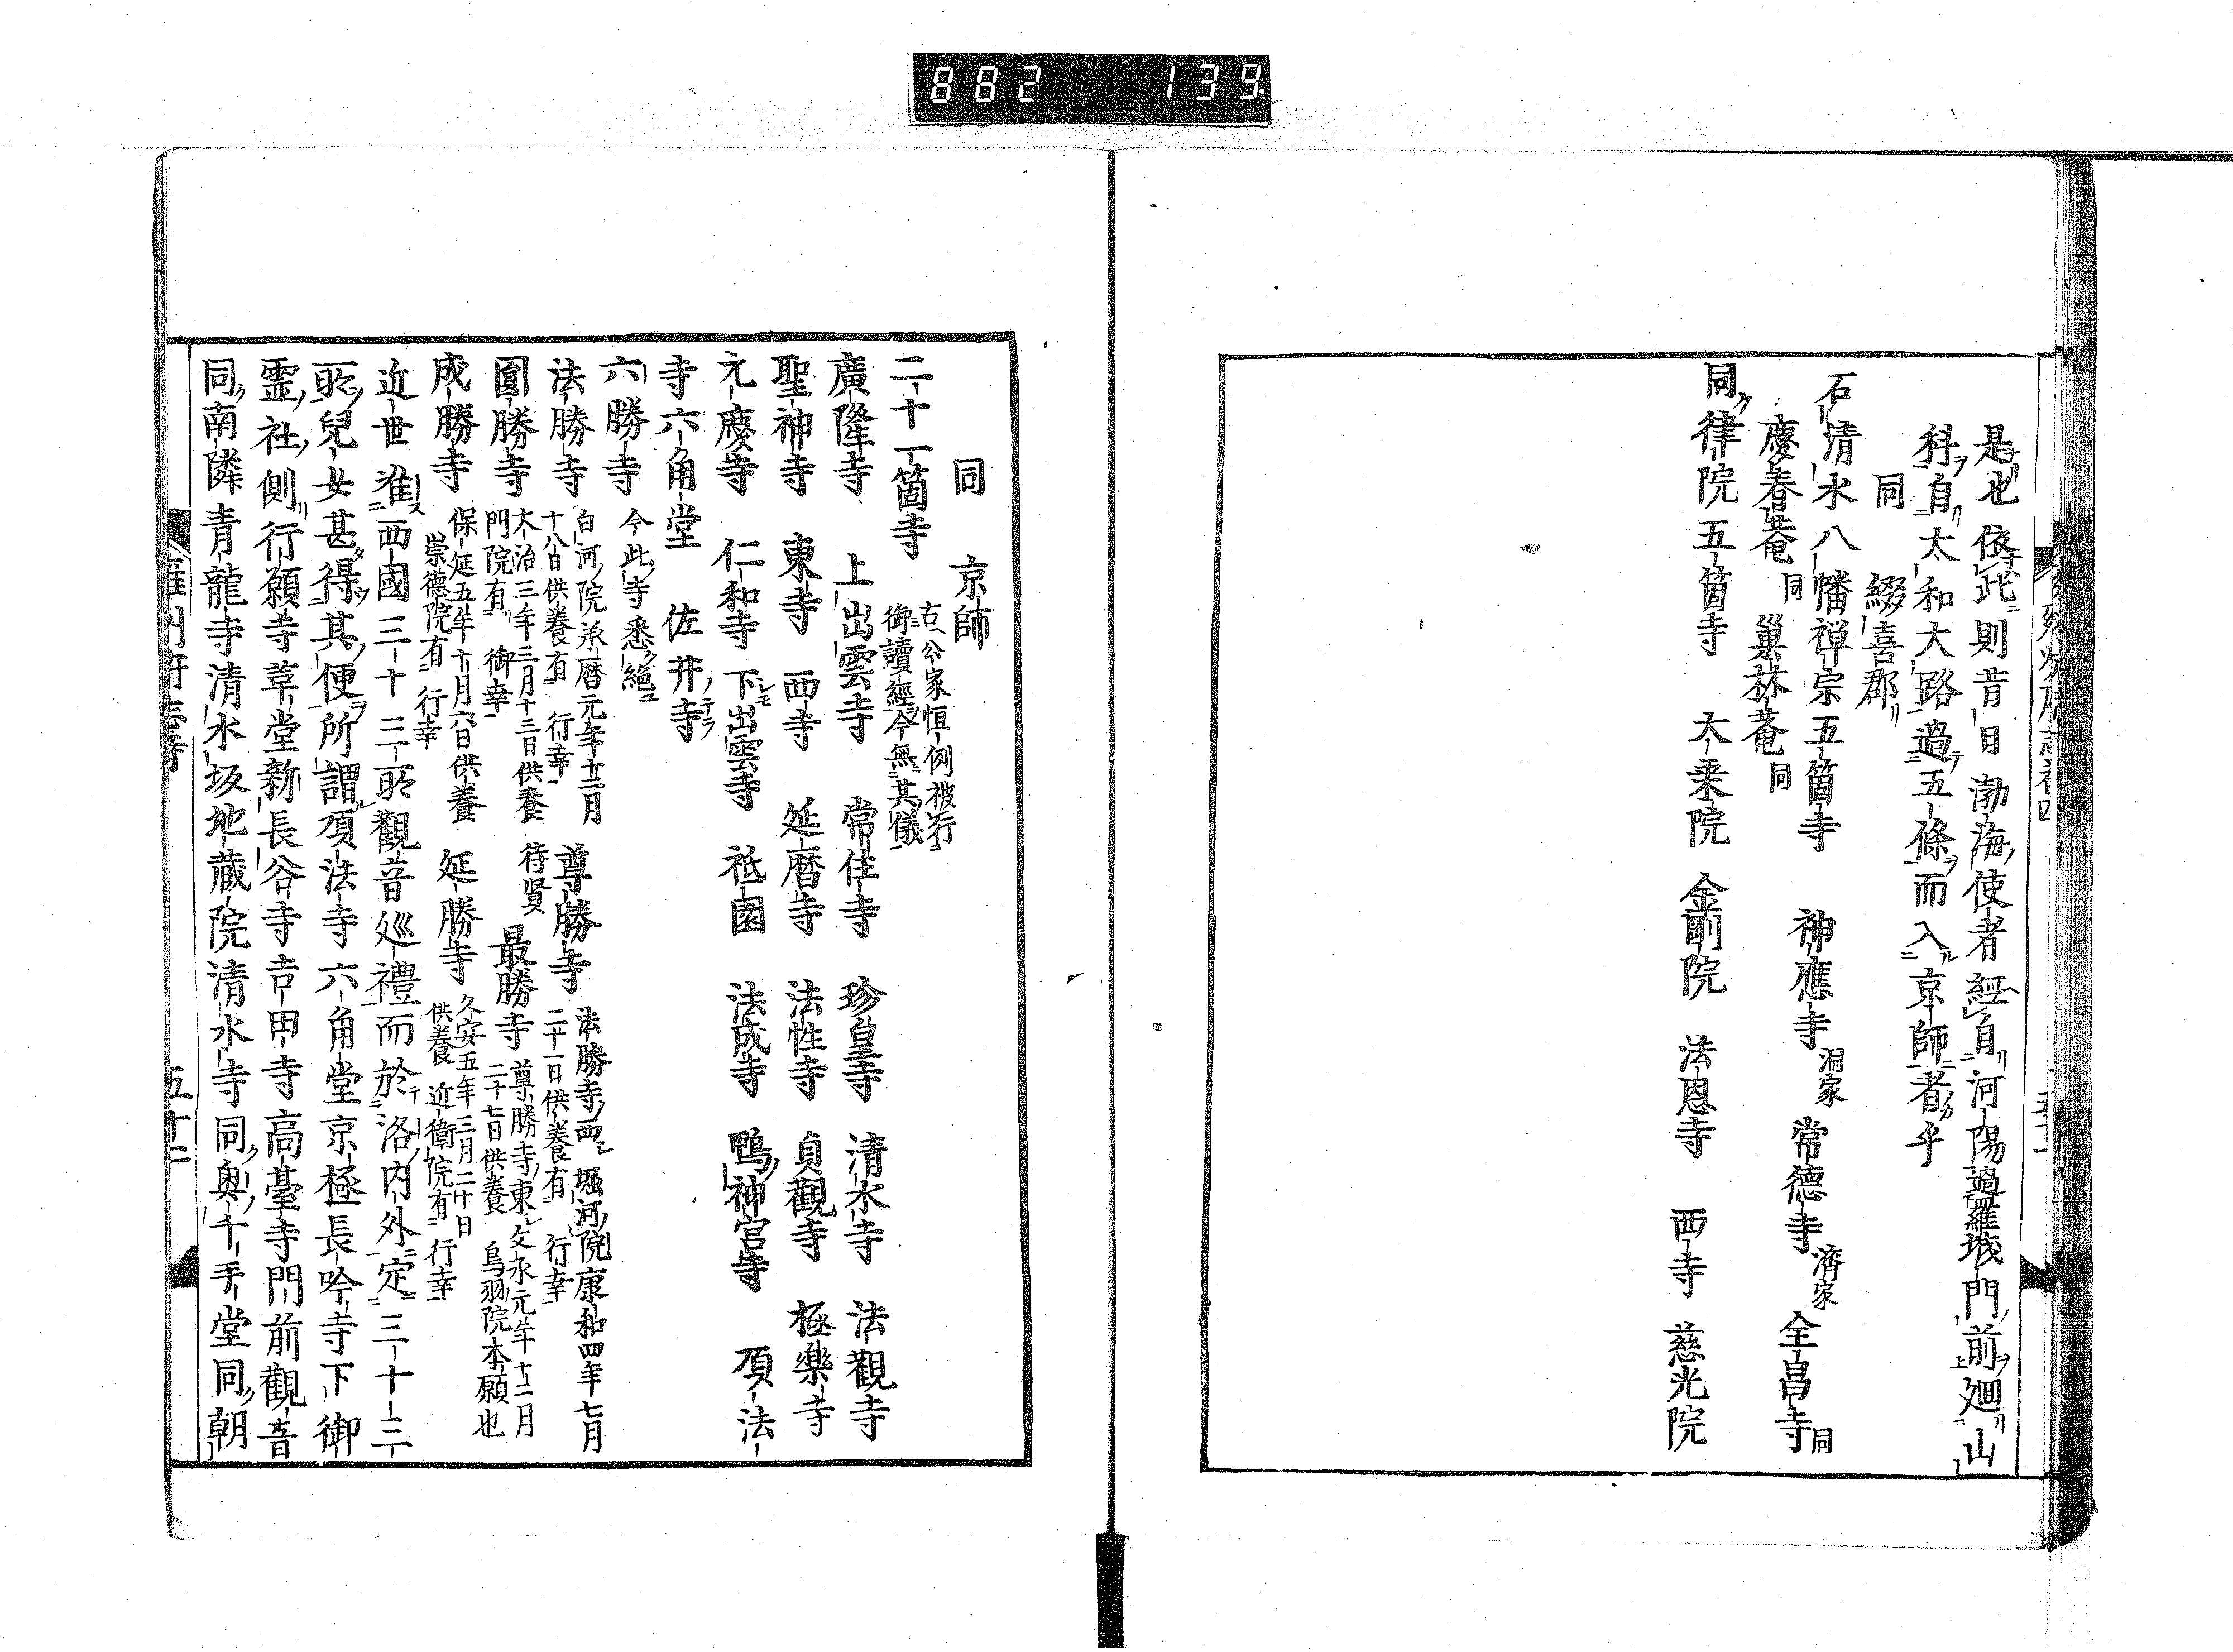 882 139
是也依此則昔日渤海使者經自河陽過羅城門前廻山
科自大和大路過五條而入京師者乎
同 綴喜郡
石清水八幡禅宗五箇寺 神應寺 洞家 常德寺 濟家 全昌寺 同
慶春菴 同 巢林菴 同
同律院五箇寺 大乗院 金剛院 法恩寺 西寺 慈光院
同 京師
二十一箇寺 古公家恒例被行御讀經今無其儀
廣隆寺 上出雲寺 常住寺 珍皇寺 清水寺 法觀寺
聖神寺 東寺 西寺 延暦寺 法性寺 貞觀寺 極樂寺
元慶寺 仁和寺 下出雲寺 祇園 法成寺 鴨神宮寺 頂法
寺六角堂 佐井寺
六勝寺 今此寺悉絶
法勝寺 白河院承暦元年十二月十八日供養有行幸 尊勝寺 法勝寺西堀河院康和四年七月二十一日供養有行幸
圓勝寺 大治三年三月十三日供養待賢門院有御幸 最勝寺 尊勝寺東文永元年十二月二十七日供養鳥羽院本願也
成勝寺 保延五年十月六日供養崇德院有行幸 延勝寺 久安五年三月二十日供養近衛院有行幸
近世准西國三十三所觀音巡禮而於洛内外定三十三
所兒女甚得其便所謂頂法寺六角堂京極長吟寺下御
霊社側行願寺革堂新長谷寺吉田寺高臺寺門前觀音
同南隣青龍寺清水坂地蔵院清水寺同奥千手堂同朝
雍州府志 五十二